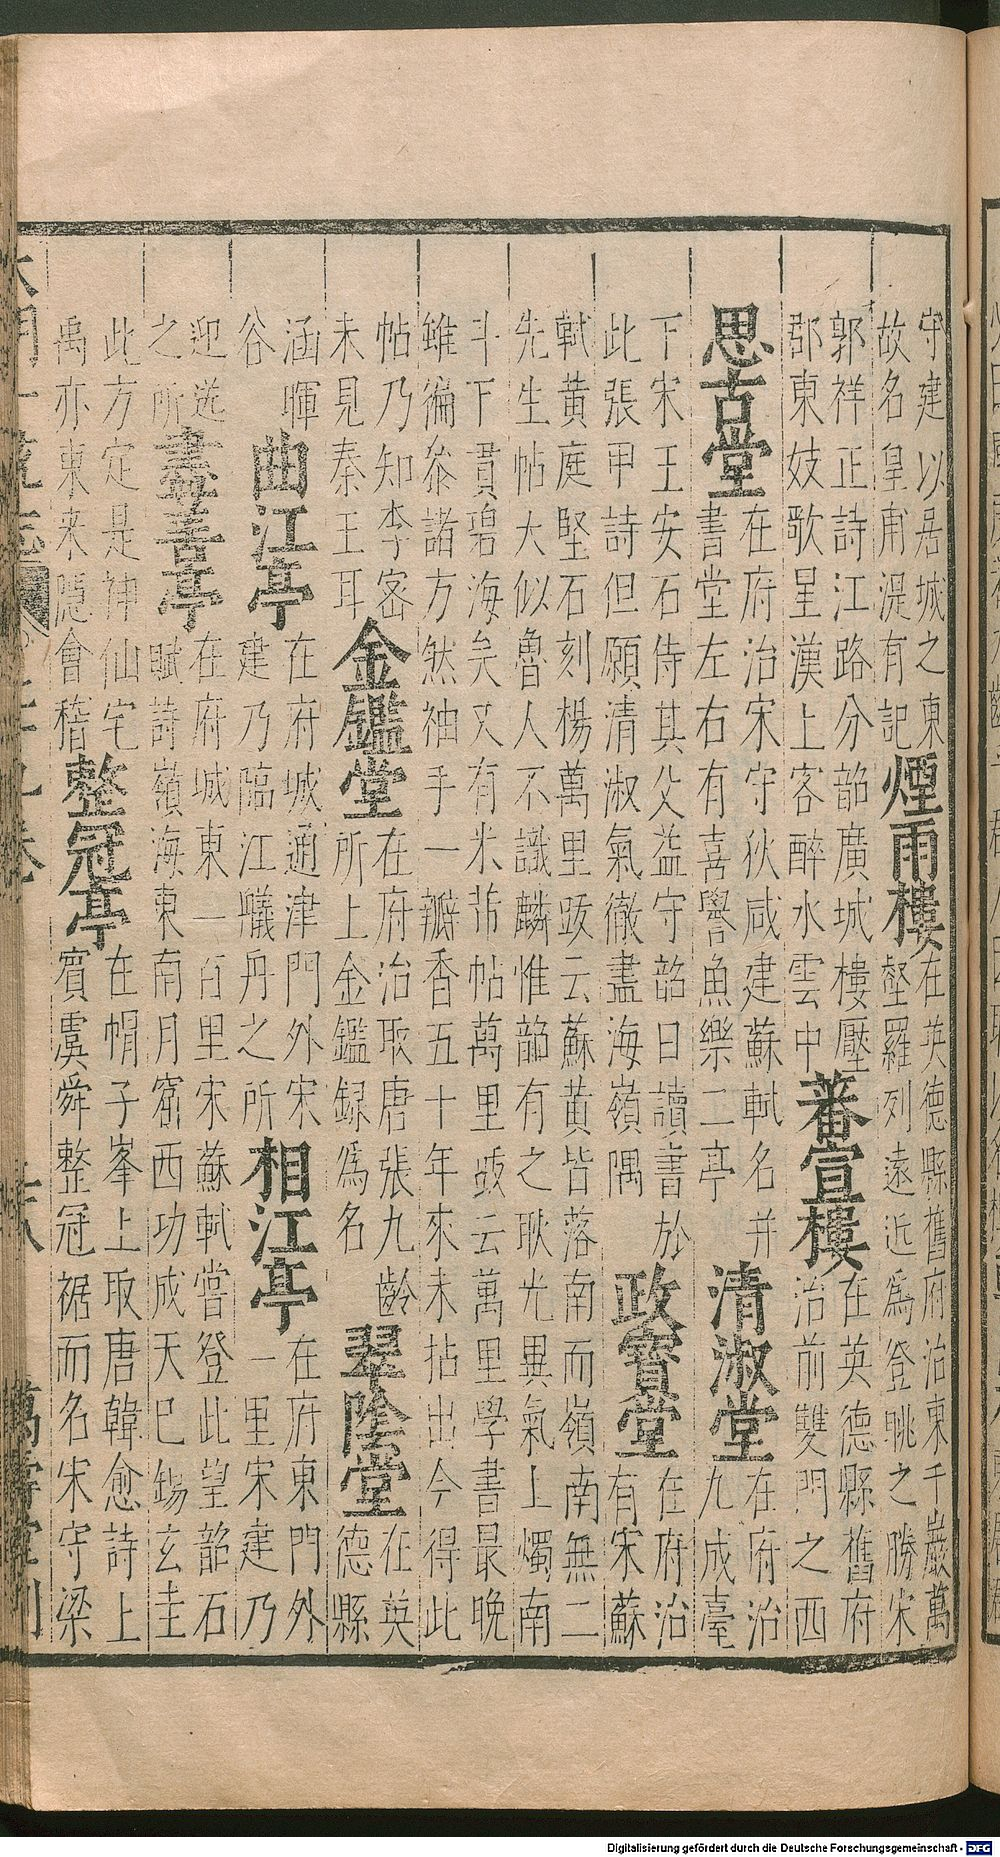 守建以居城之東
故名皇甫湜有記
煙雨樓
在英德縣舊府治東千巖萬
壑羅列遠近爲登眺之勝宋
郭祥正詩江路分韶廣城樓壓
郡東妓歌星漢上客醉水雲中
蕃宣樓
在英德縣舊府
治前雙門之西
思古堂
在府治宋守狄咸建蘇軾名并
書堂左右有喜譽魚樂二亭
清淑堂
在府治
九成臺
下宋王安石侍其父益守韶日讀書於
此張甲詩但願清淑氣徹盡海嶺隅
政寶堂
在府治
有宋蘇
軾黃庭堅石刻楊萬里跋云蘇黃皆落南而嶺南無二
先生帖大似魯人不識麟惟韶有之耿光異氣上燭南
斗下貫碧海矣又有米芾帖萬里跋云萬里學書最晚
雖徧叅諸方然袖手一瓣香五十年來未拈出今得此
帖乃知李密
未見秦王耳
金鑑堂
在府治取唐張九齡
所上金鑑録爲名
翠陰堂
在英
德縣
涵暉
谷
曲江亭
在府城通津門外宋
建乃臨江艤舟之所
相江亭
在府東門外
一里宋建乃
迎送
之所
盡善亭
在府城東一百里宋蘇軾嘗登此望韶石
賦詩嶺海東南月窟西功成天已錫玄圭
此方定是神仙宅
禹亦東来隱會稽
整冠亭
在帽子峯上取唐韓愈詩上
賓虞舜整冠裾而名宋守梁
Digitalisierung gefördert durch die Deutsche Forschungsgemeinschaft - DFG